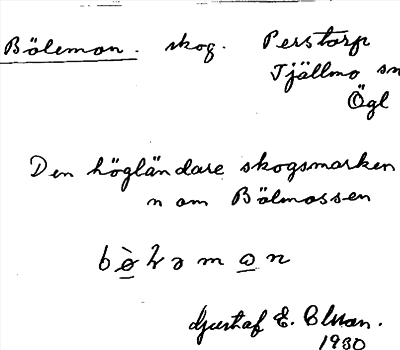 Bölemon. skog. Perstorp
Tjällmo sn
Ögl
Den högländare skogsmarken
n om Bölmossen
Gustaf E. Olsson.
1930